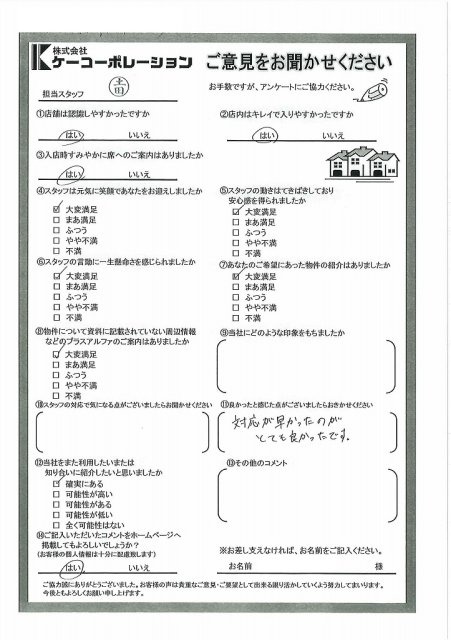 株式会社
ケーコーポレーション ご意見をお聞かせください
担当スタッフ 吉田
お手数ですが、アンケートにご協力ください。
①店舗は認識しやすかったですか
はい いいえ
②店内はキレイで入りやすかったですか
はい いいえ
③入店時すみやかに席へのご案内はありましたか
はい いいえ
④スタッフは元気に笑顔であなたをお迎えしましたか
☑ 大変満足
□ まあ満足
□ ふつう
□ やや不満
□ 不満
⑤スタッフの動きはてきぱきしており
安心感を得られましたか
☑ 大変満足
□ まあ満足
□ ふつう
□ やや不満
□ 不満
⑥スタッフの言動に一生懸命さを感じられましたか
☑ 大変満足
□ まあ満足
□ ふつう
□ やや不満
□ 不満
⑦あなたのご希望にあった物件の紹介はありましたか
☑ 大変満足
□ まあ満足
□ ふつう
□ やや不満
□ 不満
⑧物件について資料に記載されていない周辺情報
などのプラスアルファのご案内はありましたか
☑ 大変満足
□ まあ満足
□ ふつう
□ やや不満
□ 不満
⑨当社にどのような印象をもちましたか
⑩スタッフの対応で気になる点がございましたらお聞かせください
⑪良かったと感じた点がございましたらおきかせください
対応が早かったのが
とても良かったです。
⑫当社をまた利用したいまたは
知り合いに紹介したいと思いましたか
☑ 確実にある
□ 可能性が高い
□ 可能性がある
□ 可能性が低い
□ 全く可能性はない
⑬その他のコメント
⑭ご記入いただいたコメントをホームページへ
掲載してもよろしいでしょうか?
(お客様の個人情報は十分に配慮致します)
はい いいえ
※お差し支えなければ、お名前をご記入ください。
お名前 様
ご協力誠にありがとうございました。お客様の声は貴重なご意見・ご要望として出来る限り活かしていくよう努力してまいります。
今後ともよろしくお願い申し上げます。